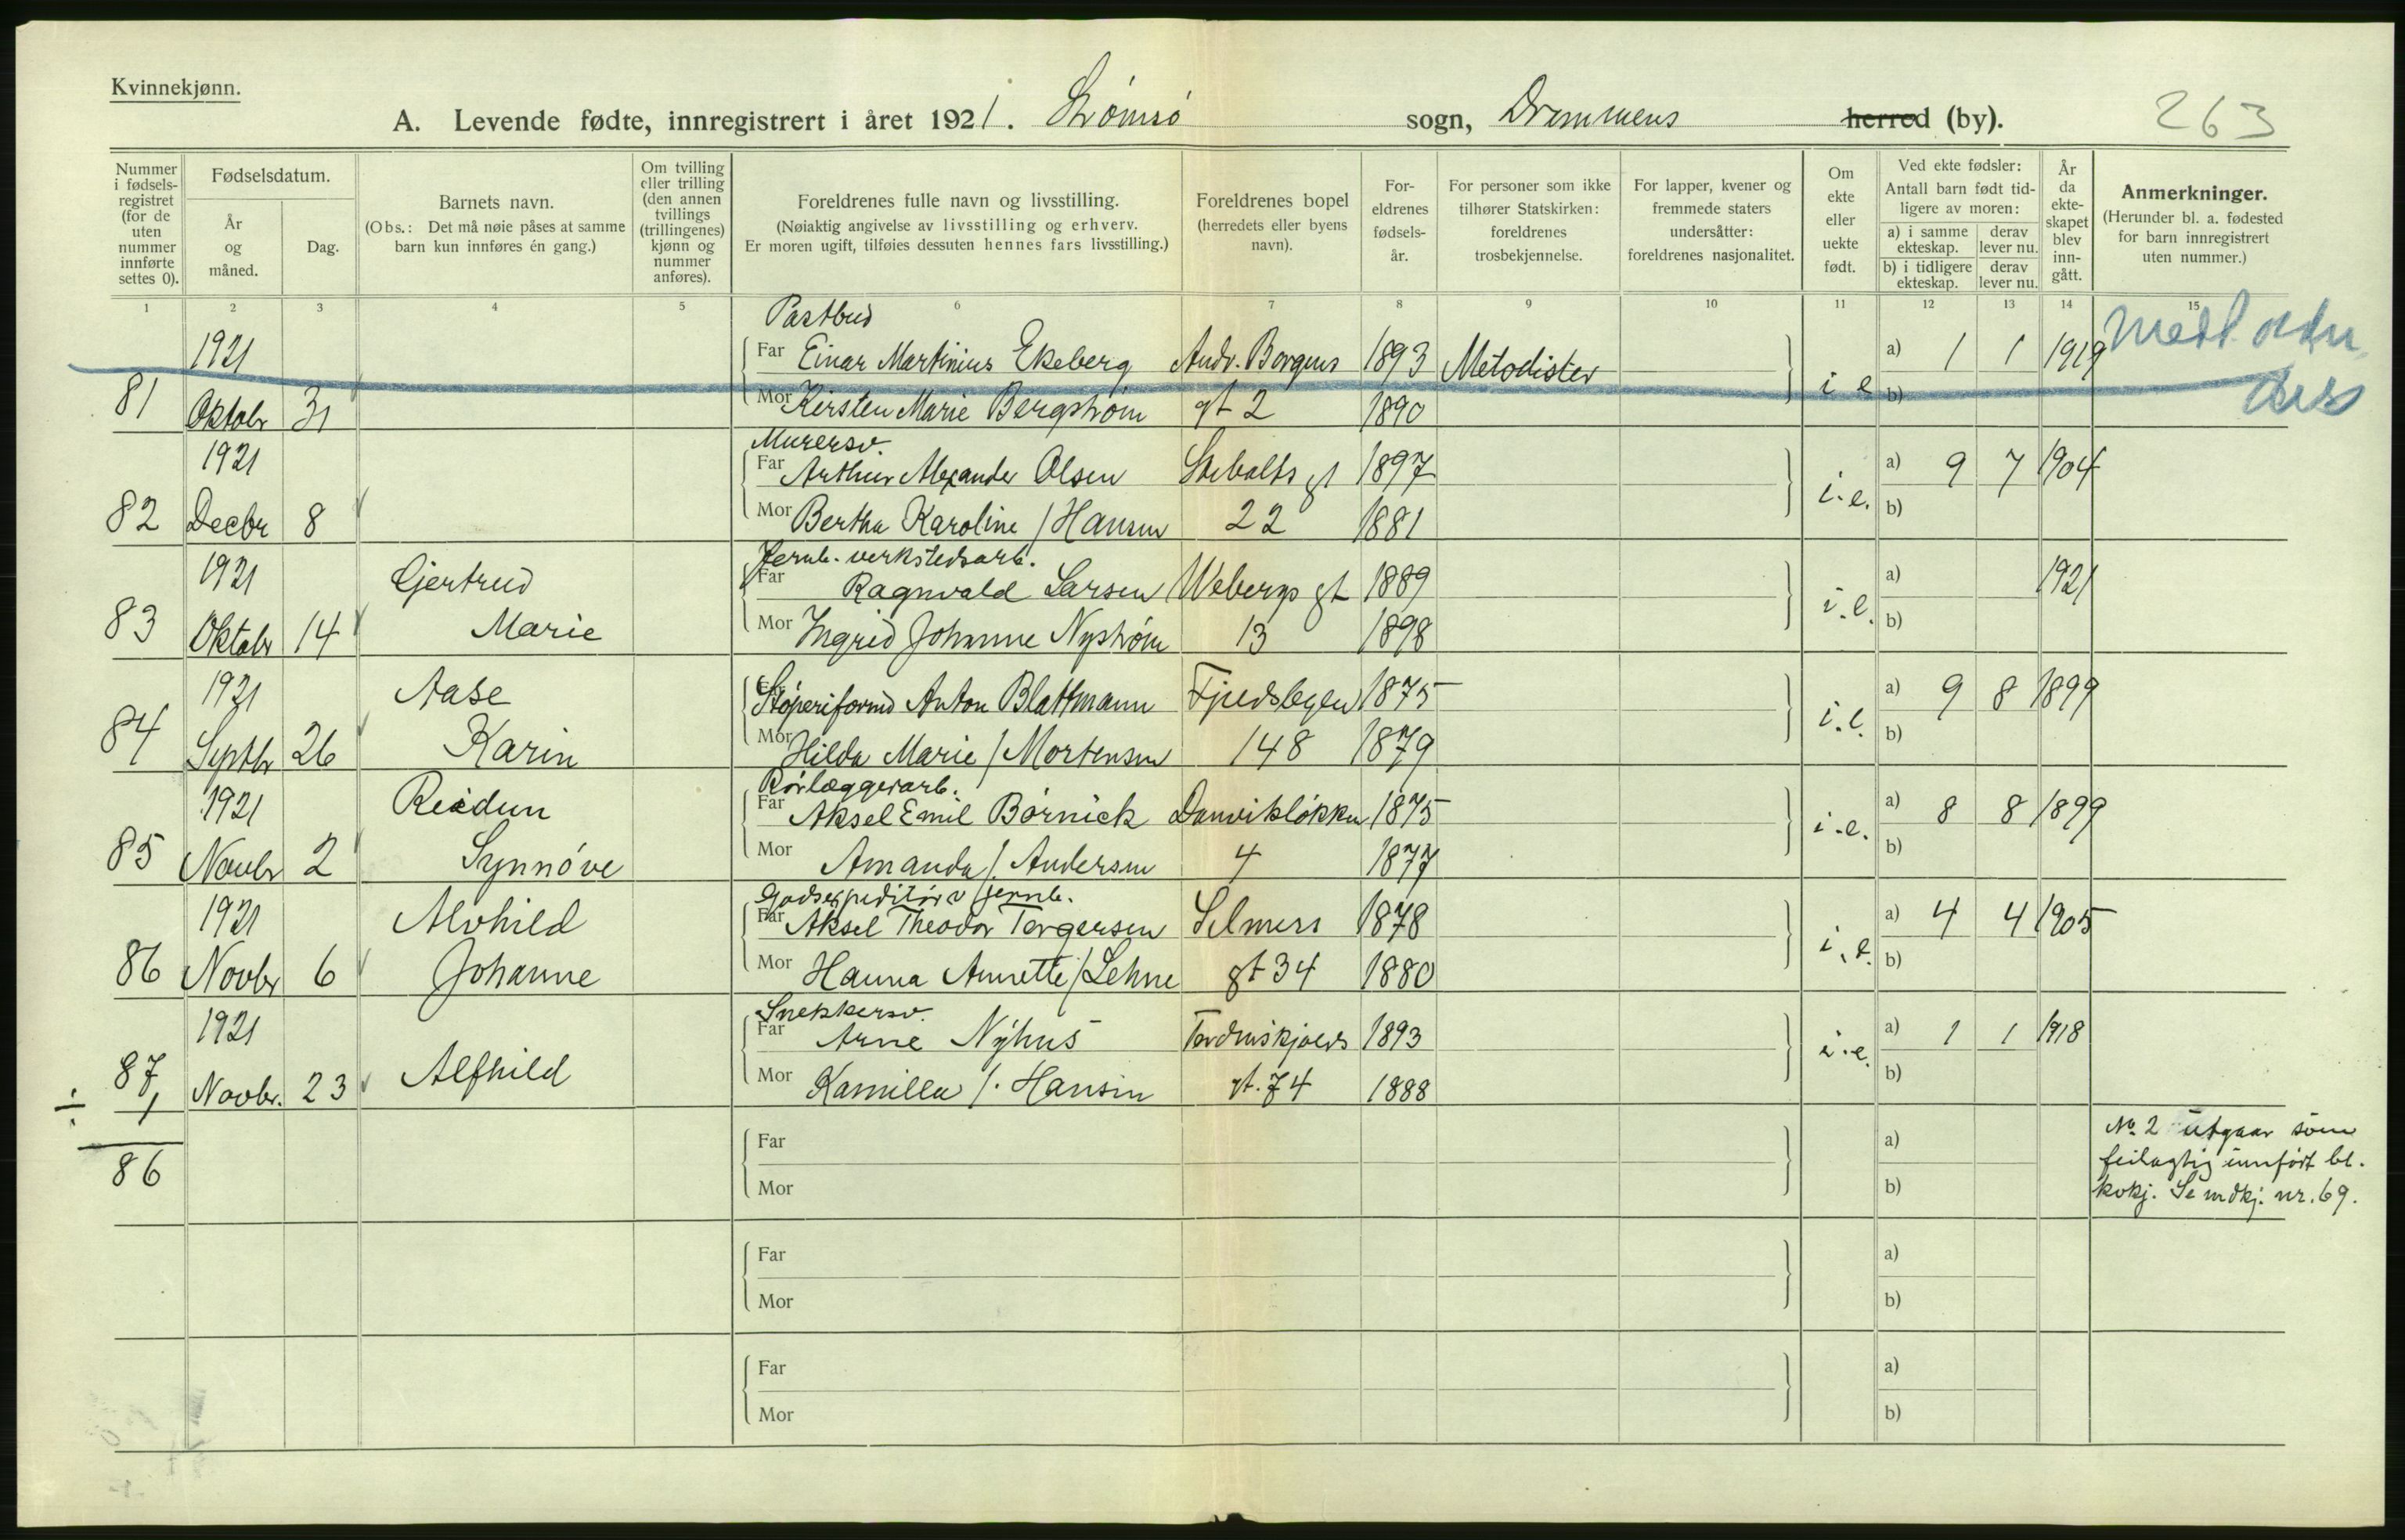 Kvinnekjønn.
A. Levende fødte, innregistrert i året 1921. Strømsø sogn, Drammens herred (by). 263
Nummer i fødsels- registret (for de uten nummer innførte settes 0).
Fødselsdatum.
År og måned.
Dag.
Barnets navn.
(Obs.: Det må nøie påses at samme barn kun innføres én gang.)
Om tvilling eller trilling (den annen tvillings (trillingenes) kjønn og nummer anføres).
Foreldrenes fulle navn og livsstilling.
(Nøiaktig angivelse av livsstilling og erhverv.
Er moren ugift, tilføies dessuten hennes fars livsstilling.)
Foreldrenes bopel (herredets eller byens navn).
For- eldrenes fødsels- år.
For personer som ikke tilhører Statskirken: foreldrenes trosbekjennelse.
For lapper, kvener og fremmede staters undersåtter: foreldrenes nasjonalitet.
Om ekte eller uekte født.
Ved ekte fødsler:
Antall barn født tid- ligere av moren:
a) i samme ekteskap.
derav lever nu.
b) i tidligere ekteskap.
derav lever nu.
År da ekte- skapet blev inn- gått.
Anmerkninger.
(Herunder bl. a. fødested for barn innregistrert uten nummer.)
1 2 3 4 5 6 7 8 9 10 11 12 13 14 15
Postbud
1921 Far Einar Martinius Ekeberg Andr. Borgens 1893 Metodister a) 1 1 1919
81 Oktobr 31 Mor Kirsten Marie Bergstrøm gt 2 1890 i e b)
Murersv.
1921 Far Arthur Alexander Olsen gt 1897 a) 9 7 1904
82 Decbr 8 Mor Bertha Karoline / Hansen 22 1881 i.e. b)
Jernb. verkstedsarb.
1921 Gjertrud Far Ragnvald Larsen Webergs gt 1889 a) 1921
83 Oktobr 14 Marie Mor Ingrid Johanne Nystrøm 13 1898 i.e. b)
1921 Aase Støperiformd Anton Blattmann 1875 a) 9 8 1899
84 Septbr 26 Karin Mor Hilda Marie / Mortensen 148 1879 i.e. b)
Rørlæggerarb.
1921 Reidun Far Aksel Emil Børnick Danvikløkken 1875 a) 8 8 1899
85 Novbr 2 Synnøve Mor Amanda /. Andersen 4 1877 i.e. b)
Godsexpeditør v jernb.
1921 Alvhild Far Aksel Theodor Torgersen Selmers 1878 a) 4 4 1905
86 Novbr 6 Johanne Mor Hanna Annette / Lehne gt 34 1880 i.e. b)
Snekkersv.
1921 Far Arne Nyhus Tordenskjolds 1893 a) 1 1 1918
87 Novbr. 23 Alfhild Mor Kamilla /. Hansen gt. 74 1888 i.e. b)
÷ 1
86
Far a)
Mor b)
No. 2 utgaar som
feilagtig innført bl.
kvkj. Se mdkj. nr. 69.
Far a)
Mor b)
Far a)
Mor b)